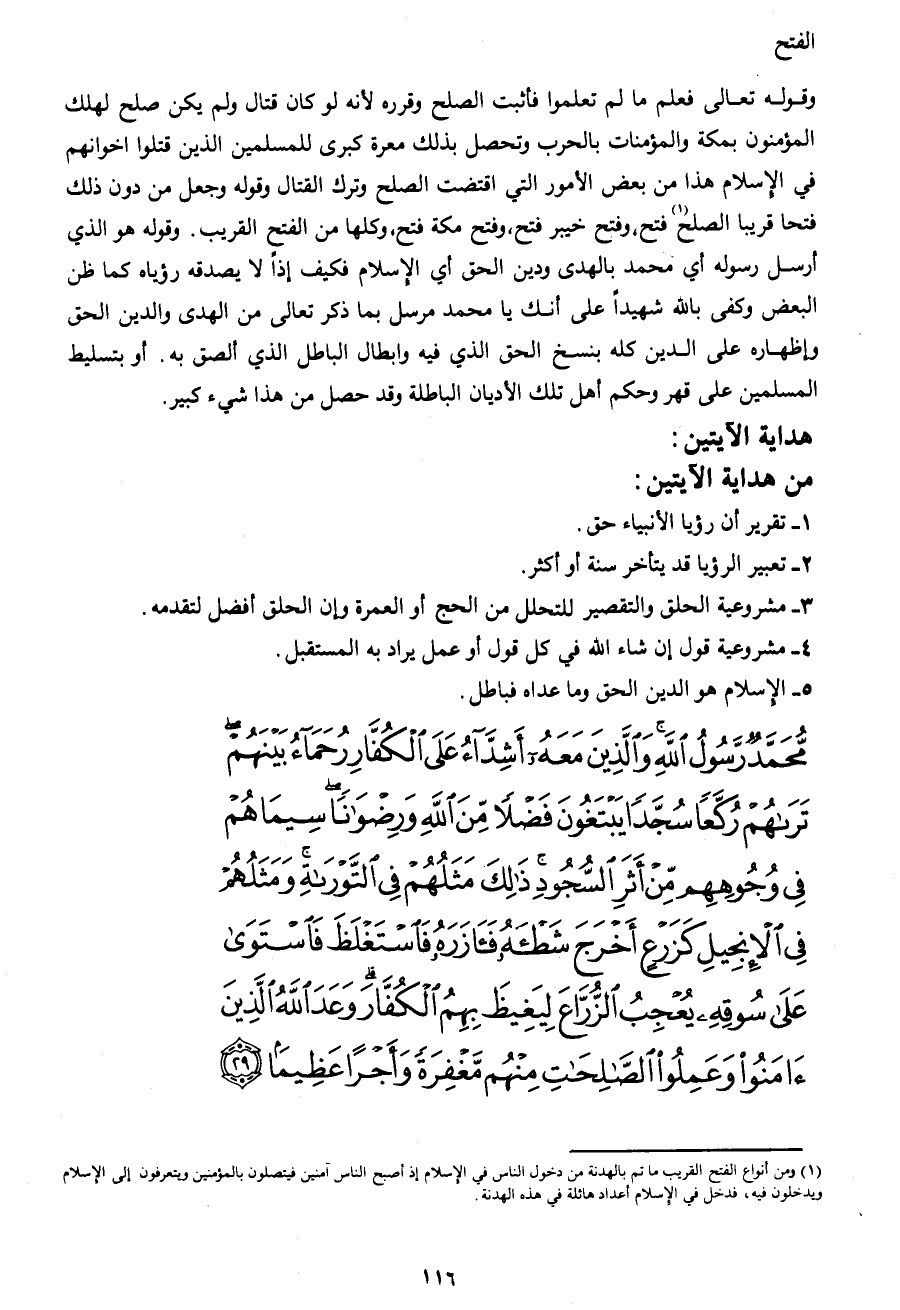 الفتح
وقـولـه تعـالى فعلم ما لم تعلموا فأثبت الصلح وقرره لأنه لو كان قتال ولم يكن صلح لهلك
المؤمنون بمكة والمؤمنات بالحرب وتحصل بذلك معرة كبرى للمسلمين الذين قتلوا اخوانهم
في الإسلام هذا من بعض الأمور التي اقتضت الصلح وترك القتال وقوله وجعل من دون ذلك
فتحا قريبا الصلح(١) فتح، وفتح خيبر فتح، وفتح مكة فتح، وكلها من الفتح القريب. وقوله هو الذي
أرسـل رسوله أي محمد بالهدى ودين الحق أي الإسلام فكيف إذاً لا يصدقه رؤياه كما ظن
البعض وكفى بالله شهيداً على أنـك يا محمد مرسل بما ذكر تعالى من الهدى والدين الحق
وإظهـاره على الـدين كله بنسـخ الحق الذي فيه وابطال الباطل الذي ألصق به. أو بتسليط
المسلمين على قهر وحكم أهل تلك الأديان الباطلة وقد حصل من هذا شيء كبير.
هداية الآيتين:
من هداية الآيتين:
١- تقرير أن رؤيا الأنبياء حق.
٢- تعبير الرؤيا قد يتأخر سنة أو أكثر.
٣- مشروعية الحلق والتقصير للتحلل من الحج أو العمرة وإن الحلق أفضل لتقدمه.
٤- مشروعية قول إن شاء الله في كل قول أو عمل يراد به المستقبل.
٥- الإسلام هو الدين الحق وما عداه فباطل.
مُّحَمَّدٌ رَّسُولُ ٱللَّهِۚ وَٱلَّذِينَ مَعَهُۥٓ أَشِدَّآءُ عَلَى ٱلۡكُفَّارِ رُحَمَآءُ بَيۡنَهُمۡۖ
تَرَىٰهُمۡ رُكَّعٗا سُجَّدٗا يَبۡتَغُونَ فَضۡلٗا مِّنَ ٱللَّهِ وَرِضۡوَٰنٗاۖ سِيمَاهُمۡ
فِي وُجُوهِهِم مِّنۡ أَثَرِ ٱلسُّجُودِۚ ذَٰلِكَ مَثَلُهُمۡ فِي ٱلتَّوۡرَىٰةِۚ وَمَثَلُهُمۡ
فِي ٱلۡإِنجِيلِ كَزَرۡعٍ أَخۡرَجَ شَطۡـَٔهُۥ فَـَٔازَرَهُۥ فَٱسۡتَغۡلَظَ فَٱسۡتَوَىٰ
عَلَىٰ سُوقِهِۦ يُعۡجِبُ ٱلزُّرَّاعَ لِيَغِيظَ بِهِمُ ٱلۡكُفَّارَۗ وَعَدَ ٱللَّهُ ٱلَّذِينَ
ءَامَنُواْ وَعَمِلُواْ ٱلصَّٰلِحَٰتِ مِنۡهُم مَّغۡفِرَةٗ وَأَجۡرًا عَظِيمَۢا ٢٩
(١) ومن أنواع الفتح القريب ما تم بالهدنة من دخول الناس في الإسلام إذ أصبح الناس آمنين فيتصلون بالمؤمنين ويتعرفون إلى الإسلام
ويدخلون فيه، فدخل في الإسلام أعداد هائلة في هذه الهدنة.
١١٦